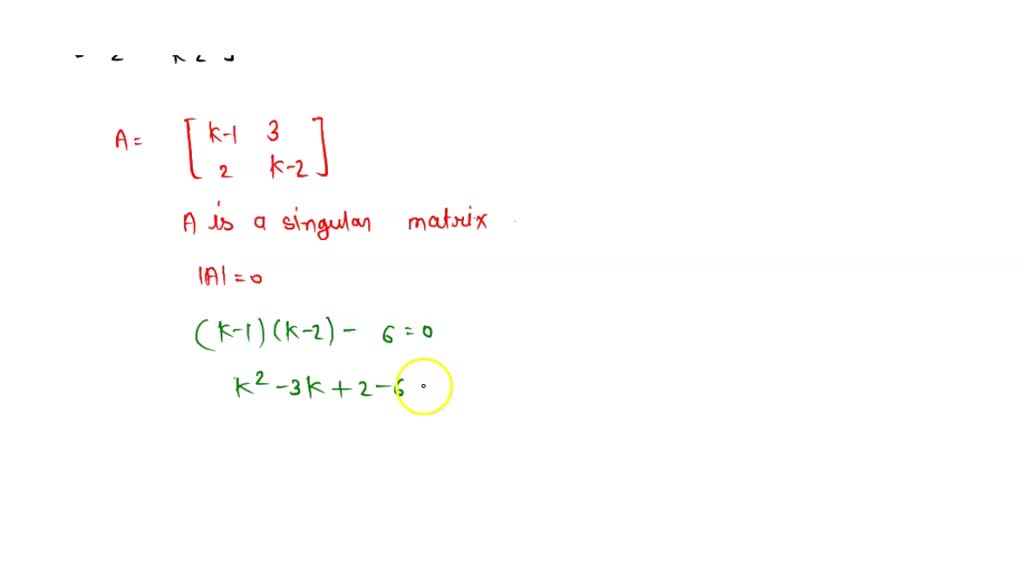 A = [ k-1 3
2 k-2 ]
A is a singular matrix
|A| = 0
(k-1)(k-2) - 6 = 0
k² - 3k + 2 - 6